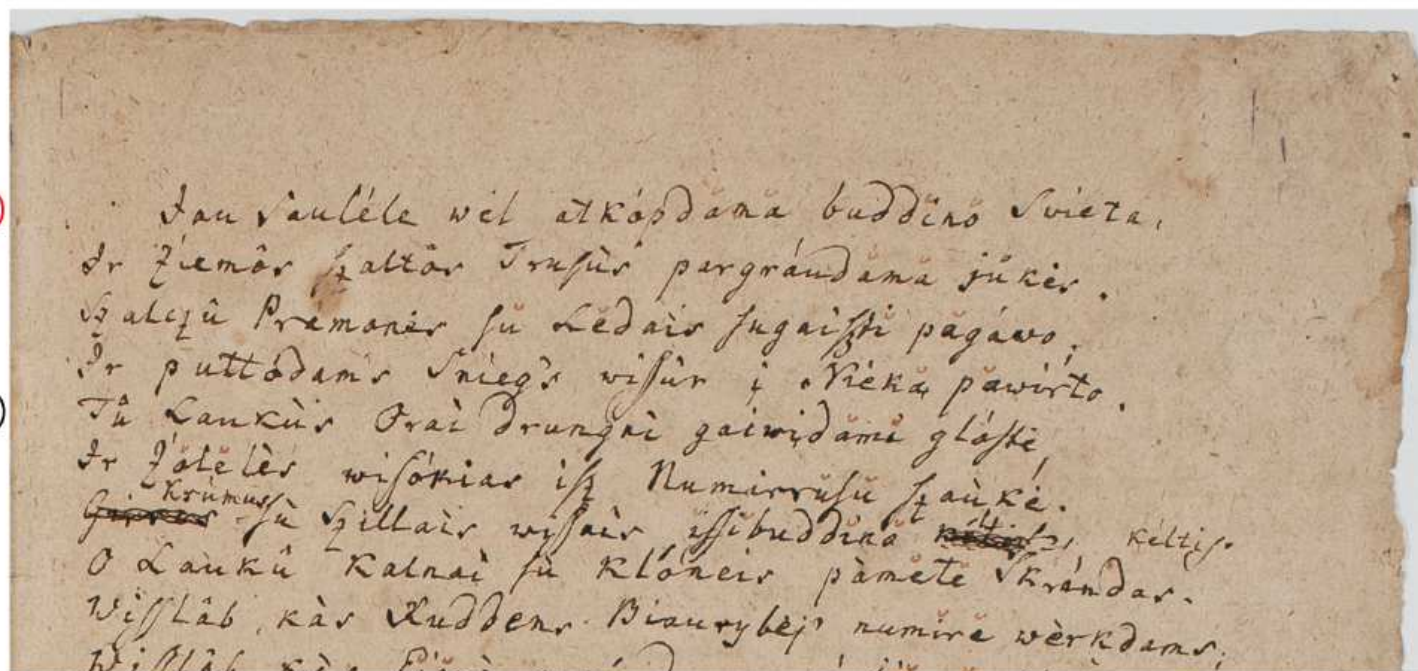 Jau Sauléle wėl atkópdăma buddĭno Svieta,
Ir Ziemôs ſzaltôs Truſùs pargráudămă jŭkės.
Szalczû Prĕmŏnės ſŭ Lĕdais ſugaiſzti pagáwo,
Ir puttódăms Snieg's wiſŭr į Niéką păwirto.
Tŭ Laukùs Orai drungni gaiwįdămi glóſtė,
Ir Zŏlĕlès wiſókias iſz Numirruſû ſzaùkė.
Krúmus ſŭ Szillais wiſſais iſſibuddĭnŏ kėltiſ.
O Laukû Kalnai ſŭ Klóneis pàmĕtė Skrándas.
Wiſſlâb, kàs Ruddens Biaurybėj' numirė wèrkdams,
Wiſſlâb kàs